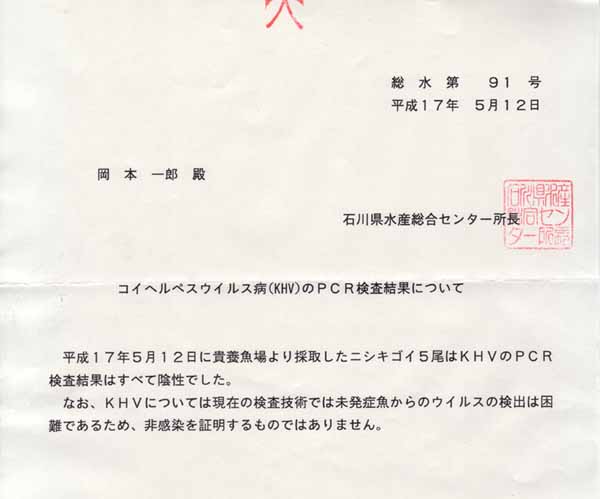 総水第　９１号
平成１７年　５月１２日
岡本　一郎　殿
石川県水産総合センター所長
コイヘルペスウイルス病(KHV)のＰＣＲ検査結果について
　平成１７年５月１２日に貴養魚場より採取したニシキゴイ５尾はＫＨＶのＰＣＲ
検査結果はすべて陰性でした。
　なお、ＫＨＶについては現在の検査技術では未発症魚からのウイルスの検出は困
難であるため、非感染を証明するものではありません。